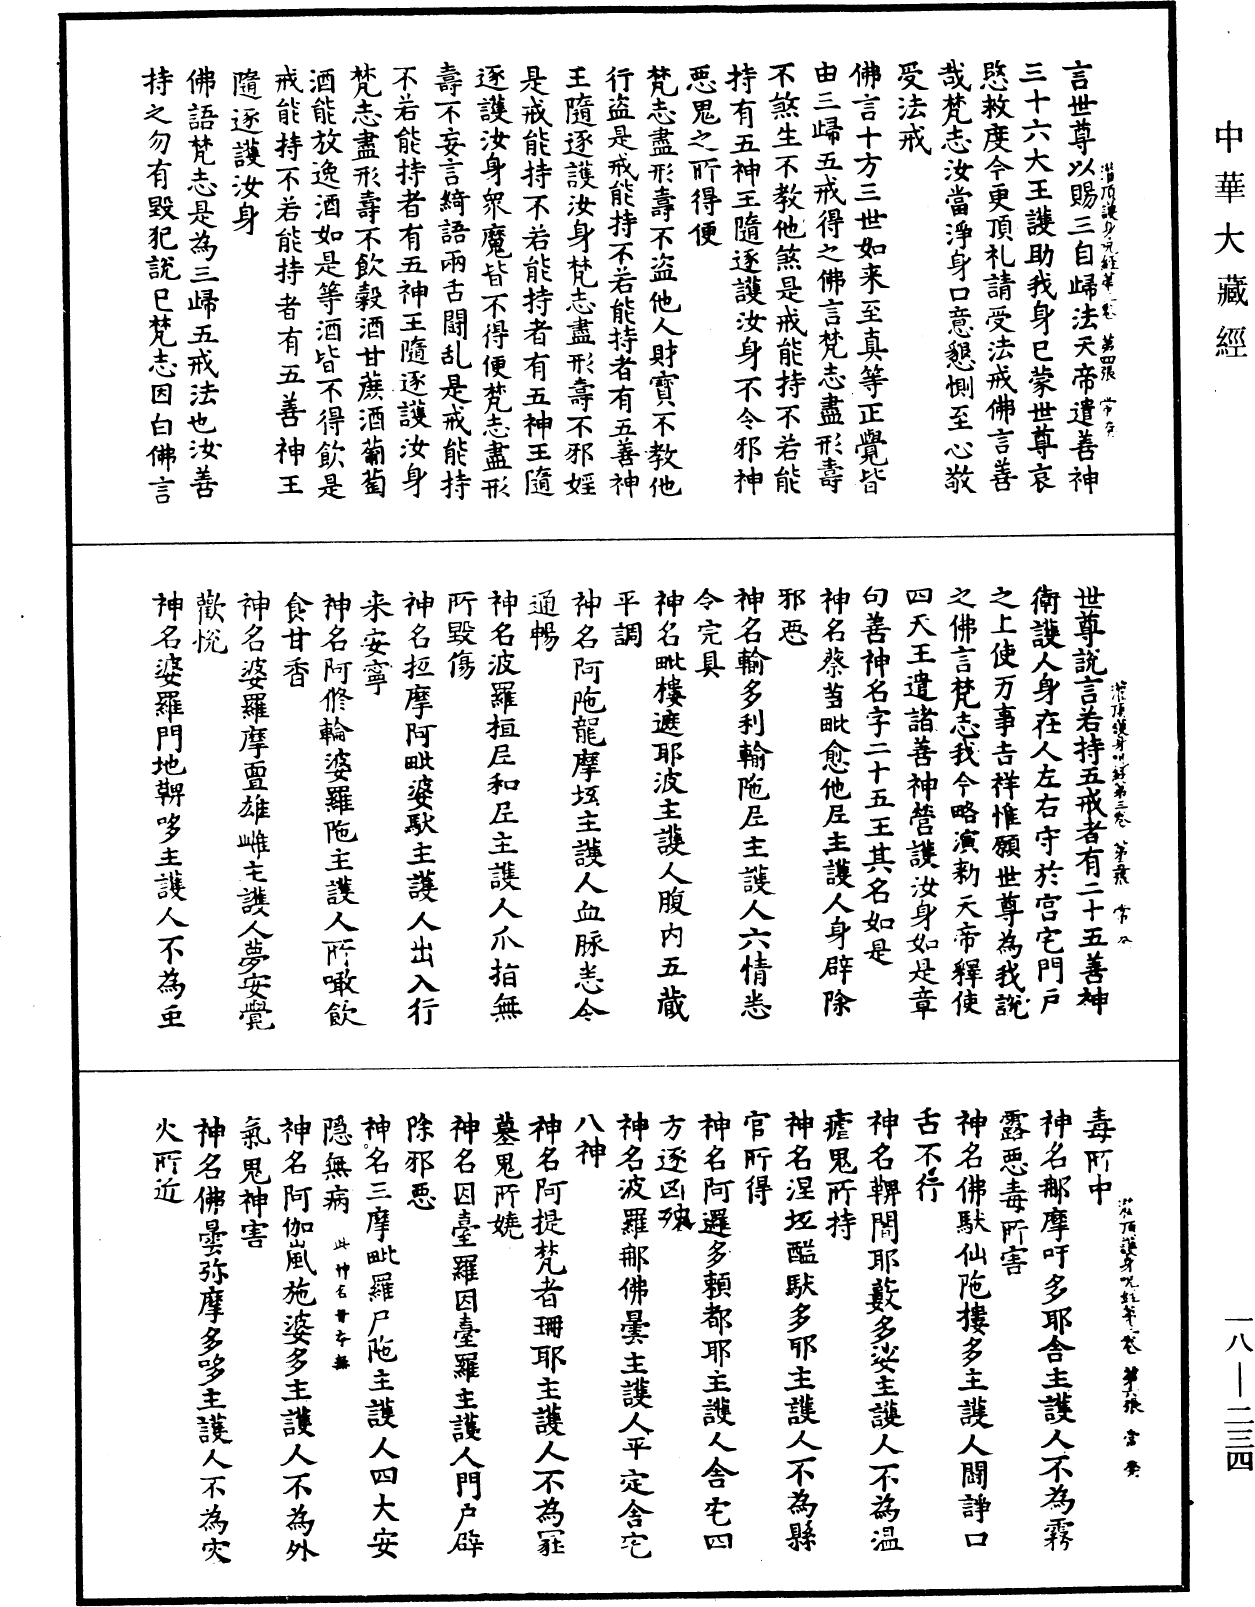 中華大藏經
言世尊以賜三自歸法天帝遣善神
三十六大王護助我身已蒙世尊哀
愍救度今更頂礼請受法戒佛言善
哉梵志汝當淨身口意懇惻至心敬
受法戒
佛言十方三世如来至真等正覺皆
由三歸五戒得之佛言梵志盡形壽
不煞生不教他煞是戒能持不若能
持有五神王隨逐護汝身不令邪神
惡鬼之所得便
梵志盡形壽不盗他人財寶不教他
行盗是戒能持不若能持者有五善神
王隨逐護汝身梵志盡形壽不邪婬
是戒能持不若能持者有五神王隨
逐護汝身衆魔皆不得便梵志盡形
壽不妄言綺語兩舌鬪乱是戒能持
不若能持者有五神王隨逐護汝身
梵志盡形壽不飲穀酒甘蔗酒蔔萄
酒能放逸酒如是等酒皆不得飲是
戒能持不若能持者有五善神王
隨逐護汝身
佛語梵志是為三歸五戒法也汝善
持之勿有毀犯說已梵志因白佛言
灌頂護身呪經第三卷 第四張 常
世尊說言若持五戒者有二十五善神
衛護人身在人左右守於宫宅門户
之上使万事吉祥惟願世尊為我說
之佛言梵志我今略演勑天帝釋使
四天王遣諸善神營護汝身如是章
句善神名字二十五王其名如是
神名蔡蒭毗愈他尼主護人身辟除
邪惡
神名輸多利輸陁尼主護人六情悉
令完具
神名毗樓遮耶波主護人腹内五藏
平調
神名阿陁龍摩坻主護人血脉悉令
通暢
神名波羅桓尼和尼主護人爪指無
所毀傷
神名坻摩阿毗婆䭾主護人出入行
来安寧
神名阿修輪婆羅陁主護人所噉飲
食甘香
神名婆羅摩亶雄雌主護人夢安覺
歡悅
神名婆羅門地鞞哆主護人不為虫
灌頂護身呪經第三卷 常
毒所中
神名那摩吁多耶舍主護人不為霧
露惡毒所害
神名佛䭾仙陁樓多主護人鬪諍口
舌不行
神名鞞闍耶藪多娑主護人不為温
瘧鬼所持
神名涅坻醯䭾多耶主護人不為縣
官所得
神名阿邏多賴都耶主護人舍宅四
方逐凶殃
神名波羅那佛曇主護人平定舍宅
八神
神名阿提梵者珊耶主護人不為冢
墓鬼所嬈
神名因臺羅因臺羅主護人門户辟
除邪惡
神名三摩毗羅尸陁主護人四大安
隐無病 此神名丹本無
神名阿伽嵐施婆多主護人不為外
氣鬼神害
神名佛曇弥摩多哆主護人不為灾
火所近
灌頂護身呪經第三卷 第六張 常
一八—二三四